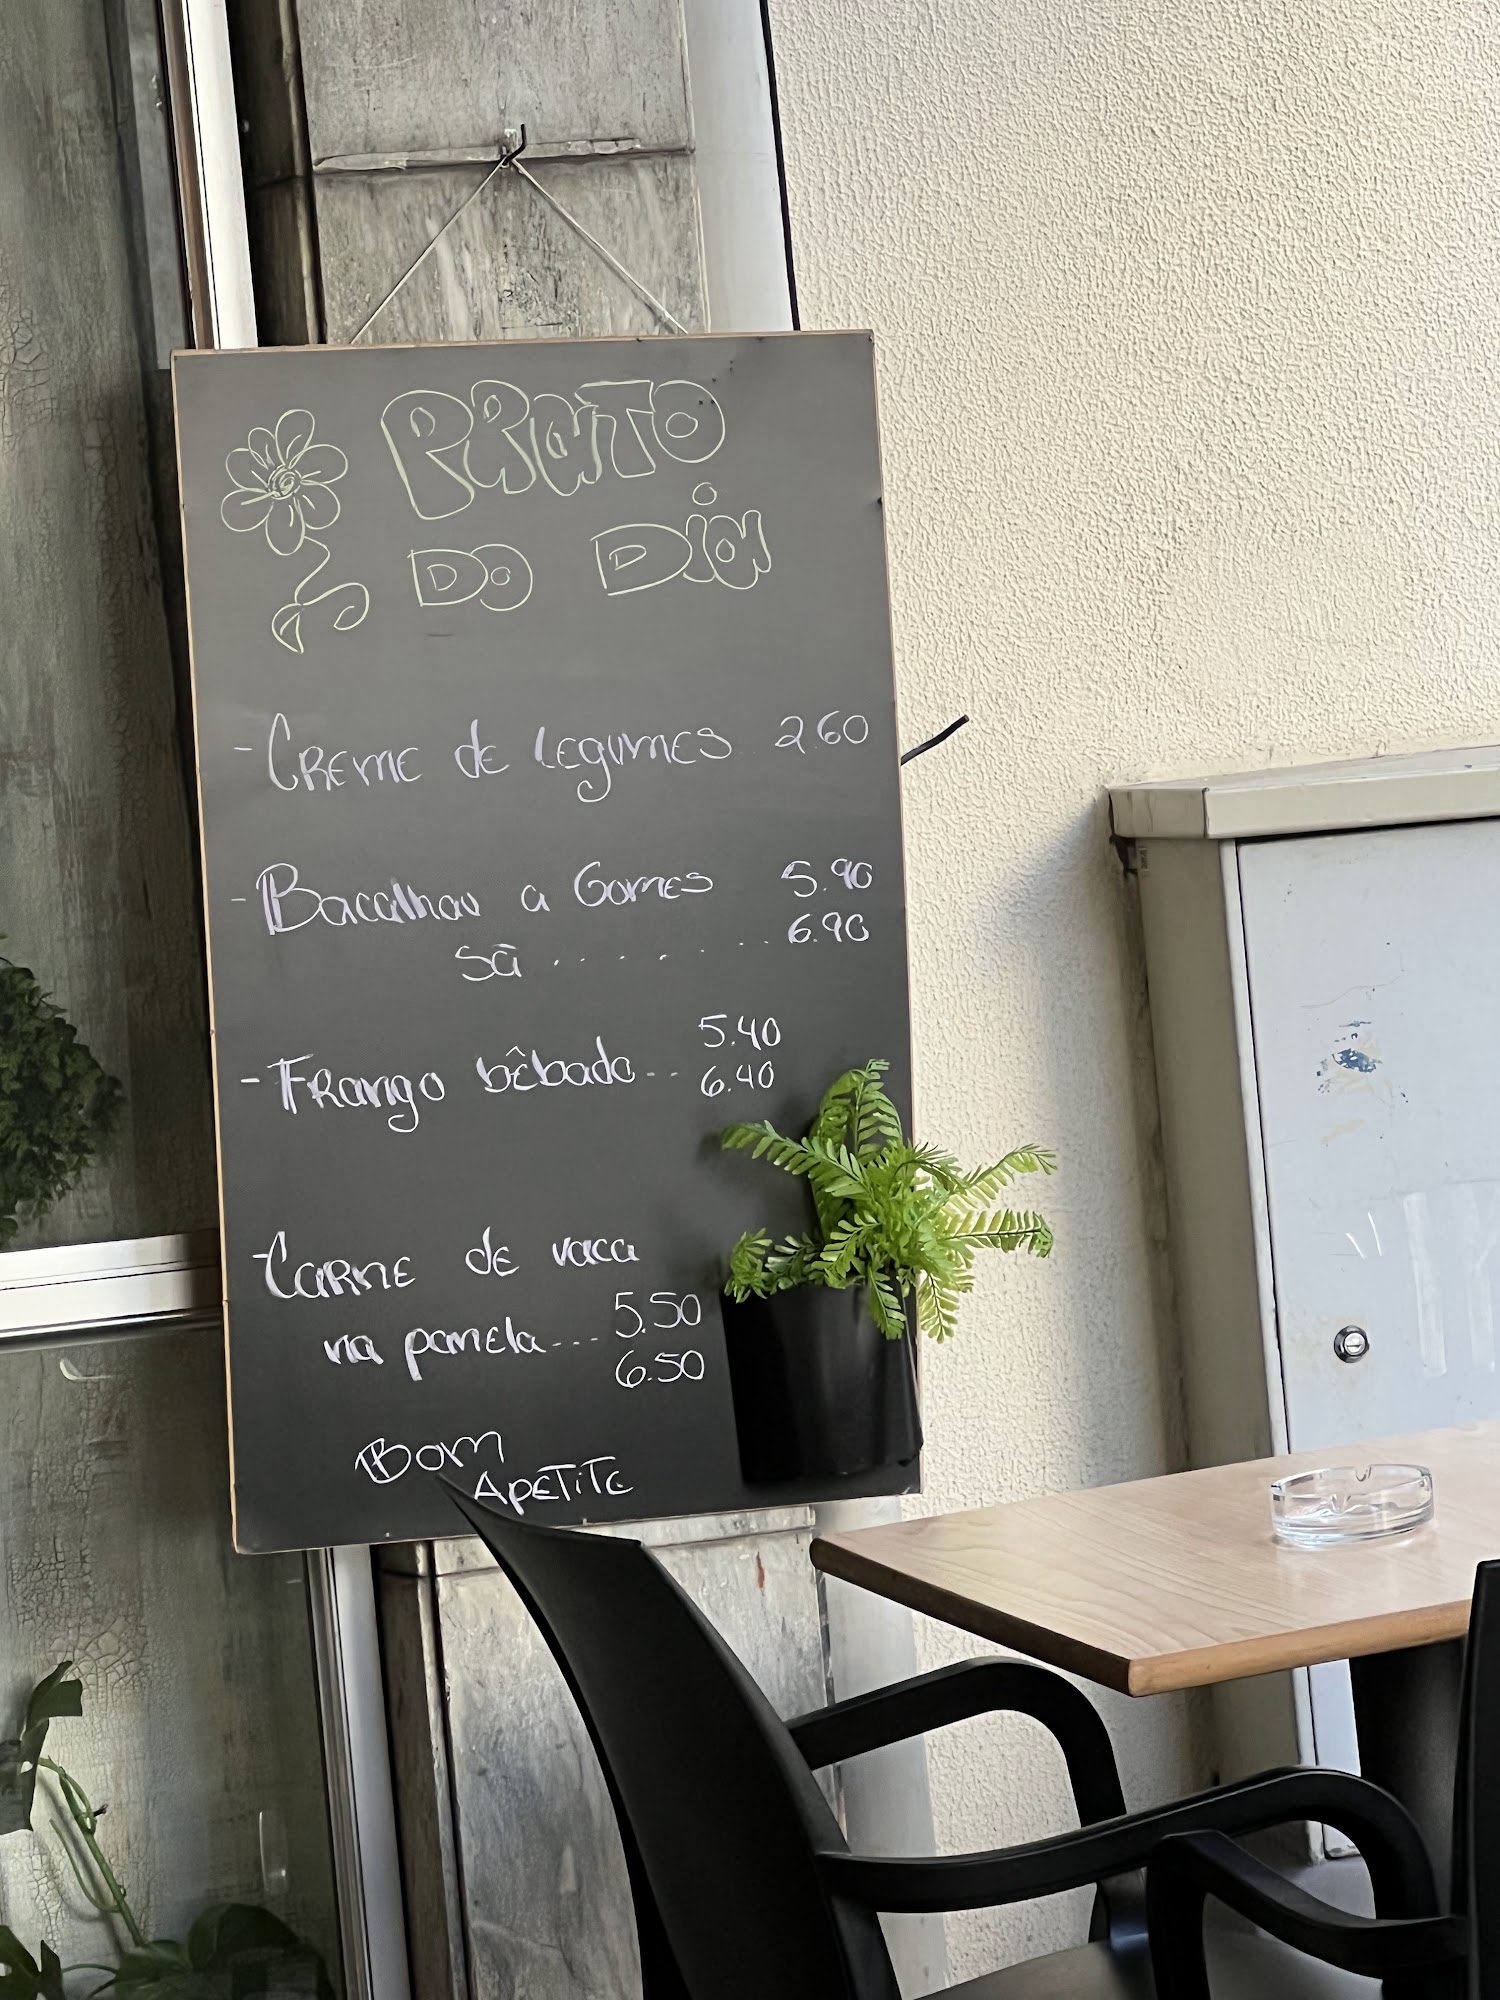 PRATO
DO Dia
- CREME de LEGUMES .. 2.60
- Bacalhau a Gomes 5.90
Sã . . . . . . . . 6.90
- FRango bêbado .. 5.40
6.40
- CaRNE de vaca
na panela ... 5.50
6.50
Bom
APETITE